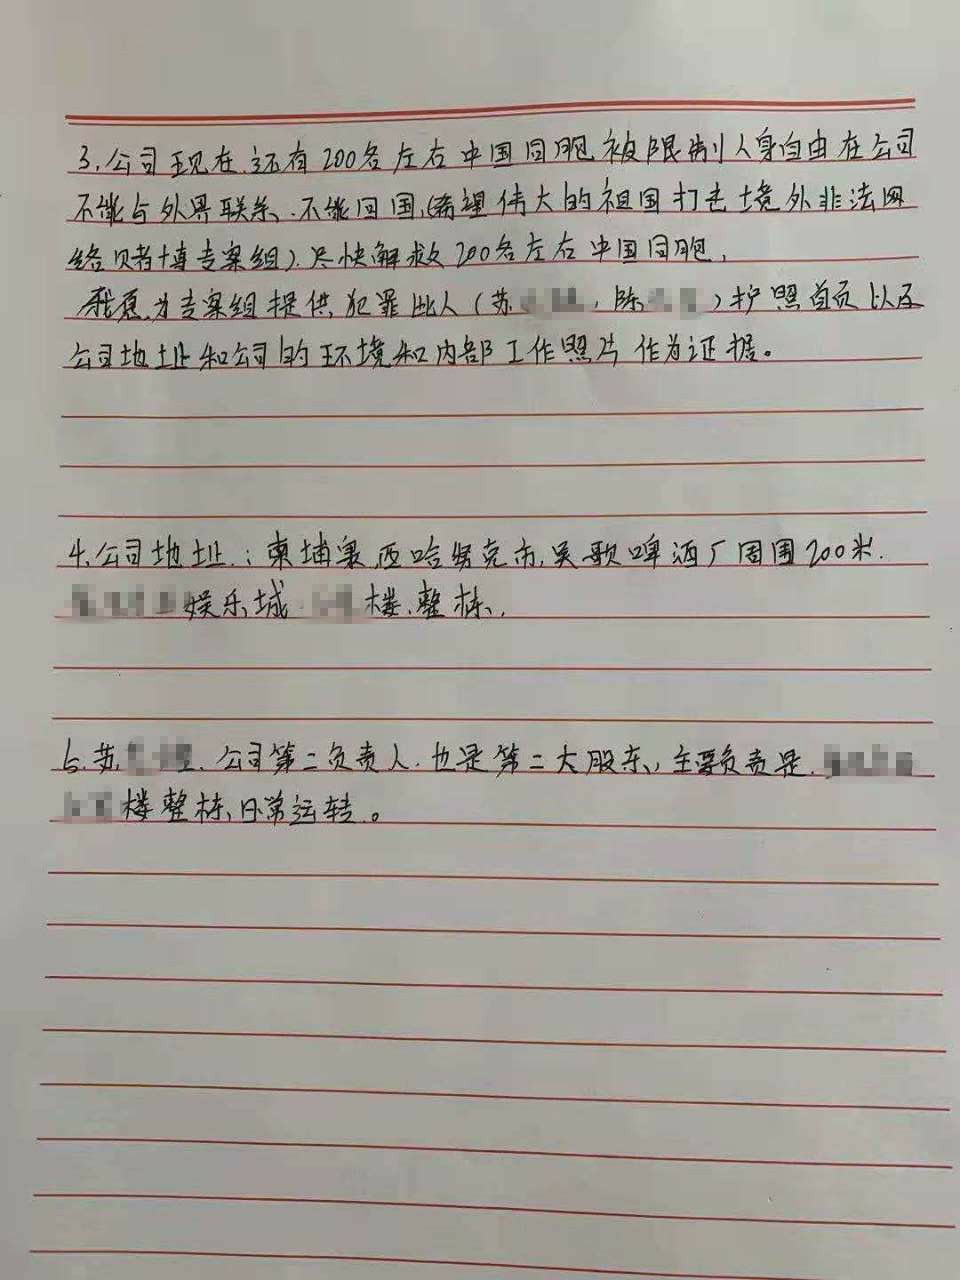 3.公司现在.还有200名左右中国同胞被限制人身自由在公司
不能与外界联系、不能回国,(希望伟大的祖国打击境外非法网
络赌博专案组).尽快解救200名左右中国同胞,
我愿为专案组提供犯罪此人(苏,陈)护照首页以及
公司地址和公司的环境和内部工作照片作为证据。
4.公司地址:柬埔寨.西哈努克市,吴歌啤酒厂周围200米.
娱乐城 楼.整栋,
5.苏.公司第二负责人.也是第二大股东,主要负责是.
楼整栋,日常运转。